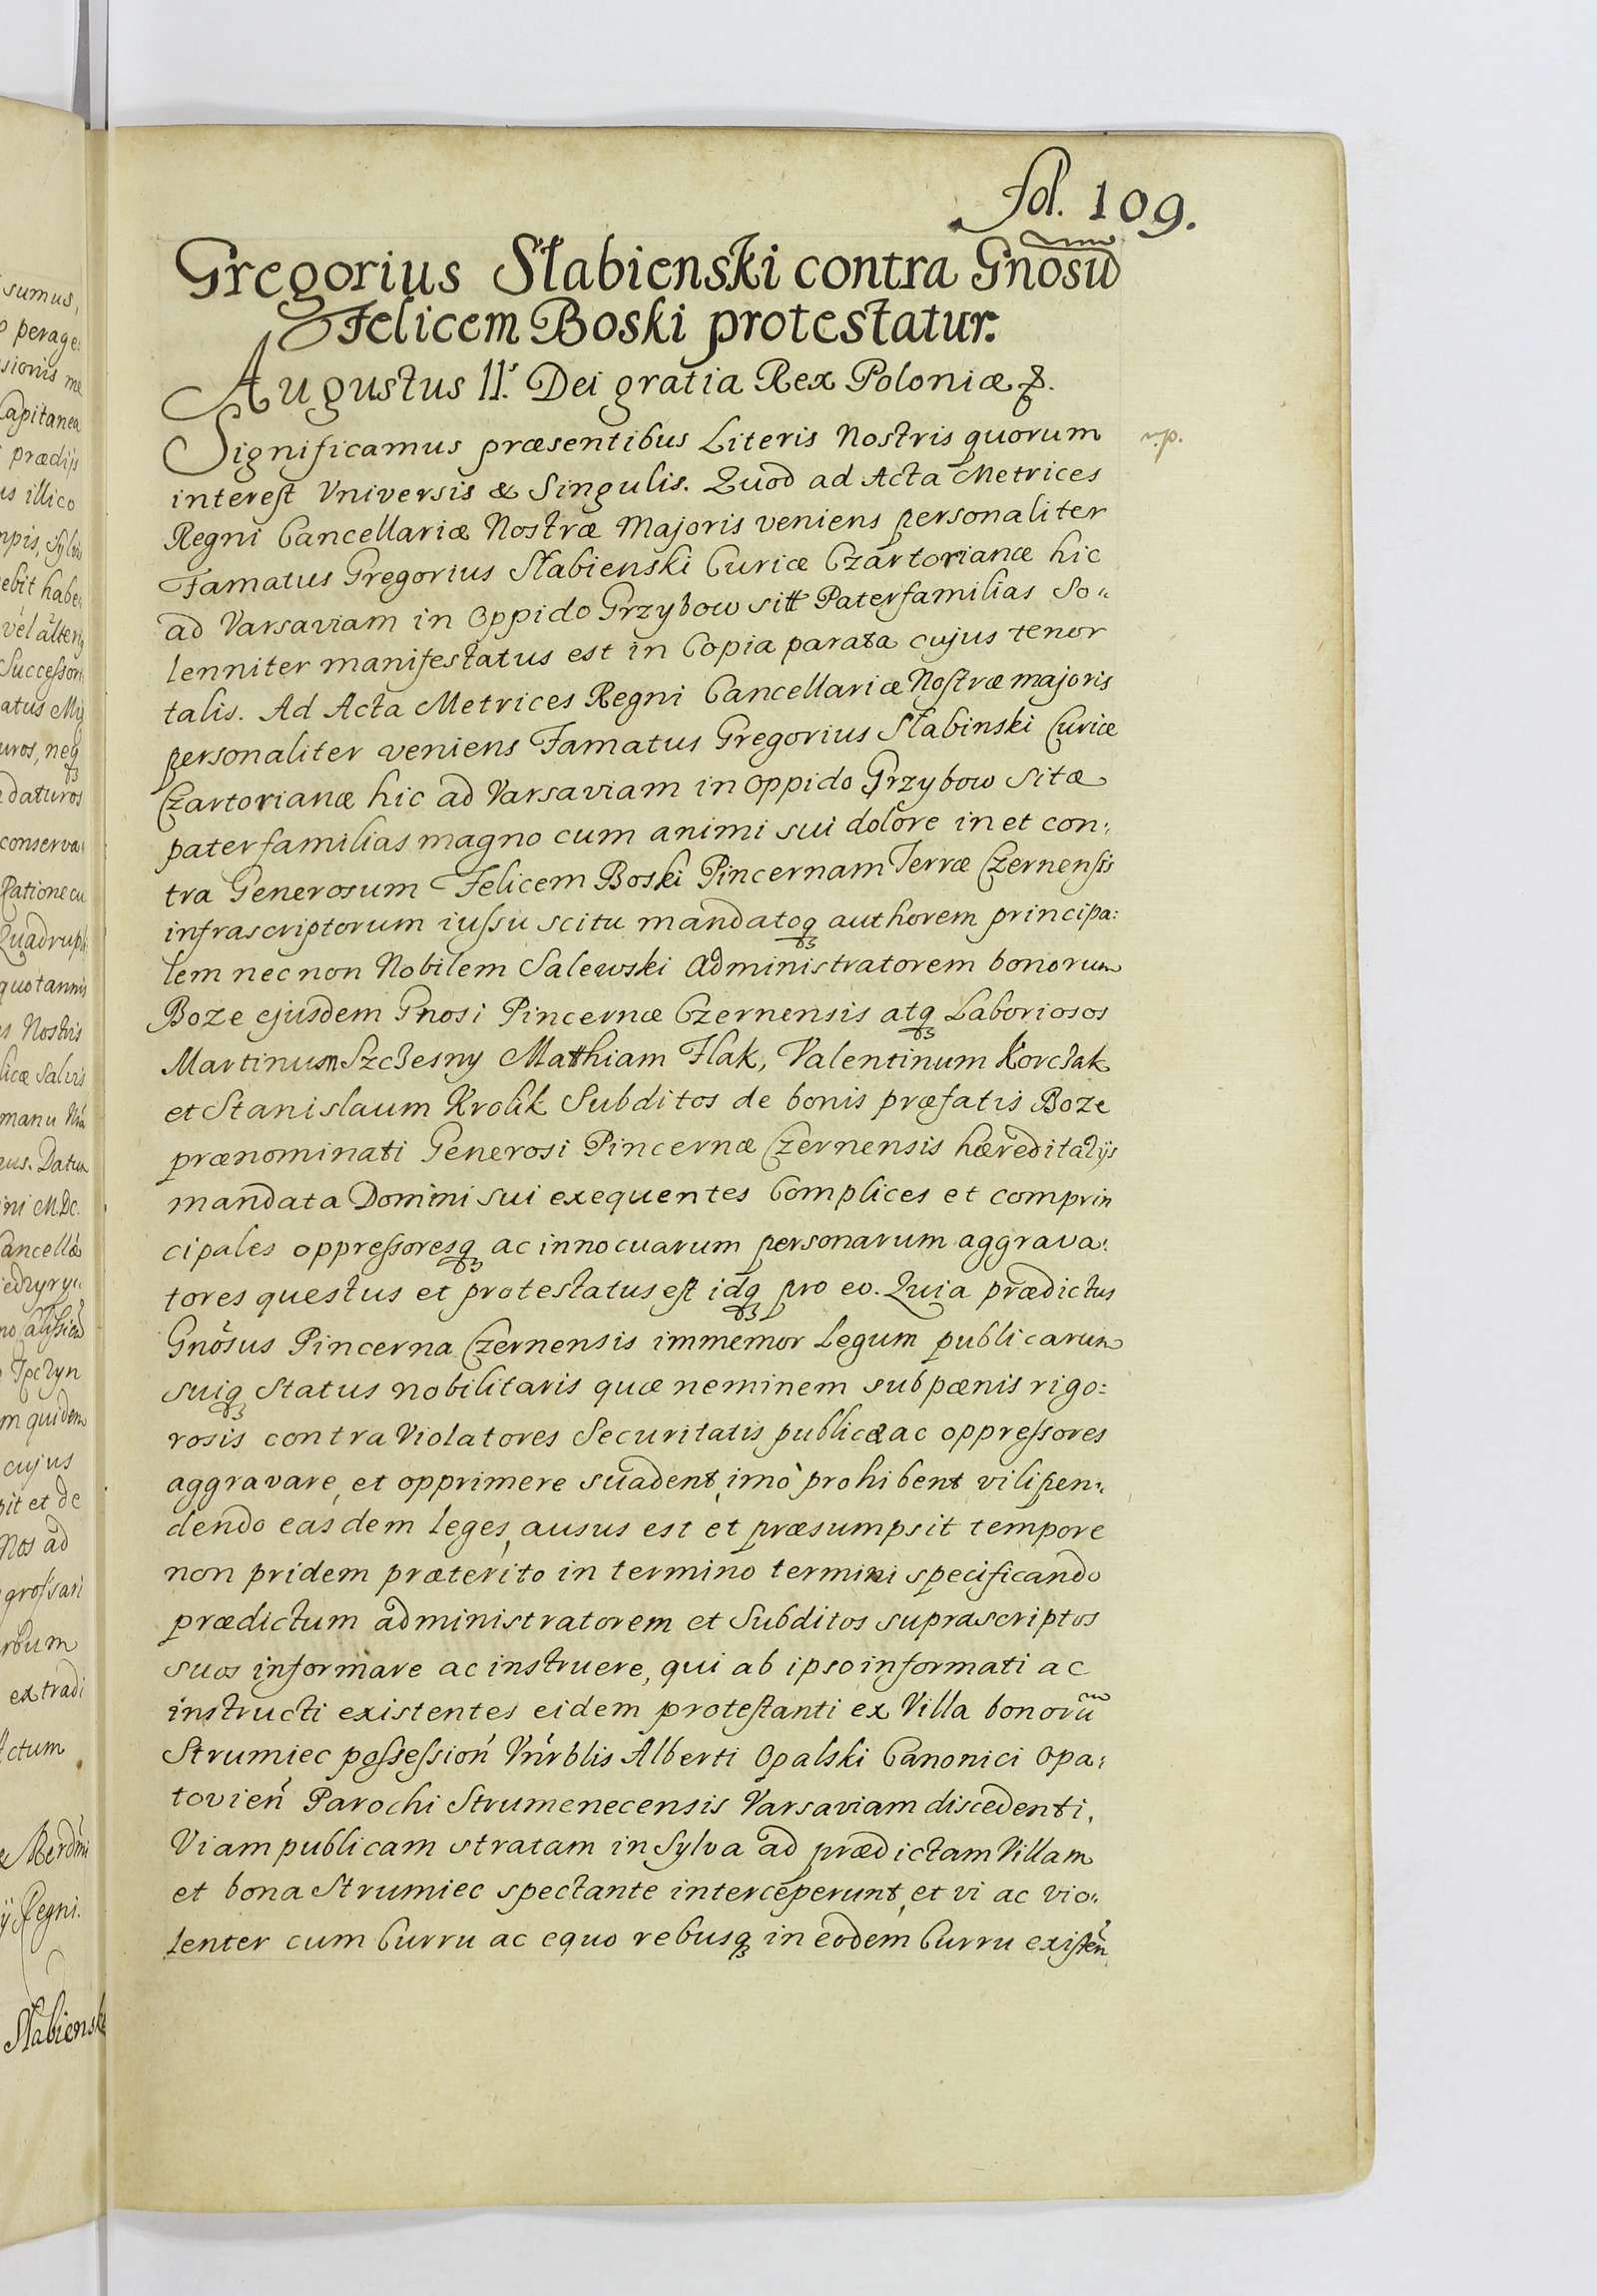 fol. 109.
Gregorius Słabienski contra Gnosũ
Felicem Boski protestatur.
Augustus II.s Dei gratia Rex Poloniæ &.
Significamus præsentibus Literis Nostris quorum
interest Vniversis & Singulis. Quod ad Acta Metrices
Regni Cancellariæ Nostræ Majoris veniens personaliter
Famatus Gregorius Słabienski Curiæ Czartorianæ hic
ad Varsaviam in Oppido Grzybow sitt Paterfamilias So„
lenniter manifestatus est in Copia parata cujus tenor
talis. Ad Acta Metrices Regni Cancellariæ Nostræ majoris
personaliter veniens Famatus Gregorius Słabinski Curiæ
Czartorianæ hic ad Varsaviam in oppido Grzybow sitæ
paterfamilias magno cum animi sui dolore in et con:
tra Generosum Felicem Boski Pincernam Terræ Czernensis
infrascriptorum iussu scitu mandatoq3 authorem principa:
lem nec non Nobilem Salewski Administratorem bonorum
Boze ejusdem Gnosi Pincernæ Czernensis atq3 Laboriosos
Martinum Szczesny Matthiam Flak, Valentinum Korczak
et Stanislaum Krolik Subditos de bonis præfatis Boze
prænominati Generosi Pincernæ Czernensis hæreditarijs
mandata Domini sui exequentes Complices et comprin
cipales oppressoresq3 ac innocuarum personarum aggrava:
tores questus et protestatus est idq3 pro eo. Quia prædictus
Gnõsus Pincerna Czernensis immemor Legum publicarum
suiq3 Status nobilitaris quæ neminem sub pænis rigo:
rosis contra Violatores Securitatis publicæ ac oppressores
aggravare, et opprimere suadent, imò prohibent vilipen„
dendo easdem leges, ausus est et præsumpsit tempore
non pridem præterito in termino termini specificando
prædictum administratorem et Subditos suprascriptos
suos informare ac instruere, qui ab ipso informati ac
instructi existentes eidem protestanti ex Villa bonorũ
Strumiec possessioń Vnŕblis Alberti Opalski Canonici Opa:
tovień Parochi Strumenecensis Varsaviam discedenti,
Viam publicam stratam in Sylva ad prædictam Villam
et bona Strumiec spectante interceperunt, et vi ac vio„
lenter cum Curru ac equo rebusq3 in eodem Curru existeñ